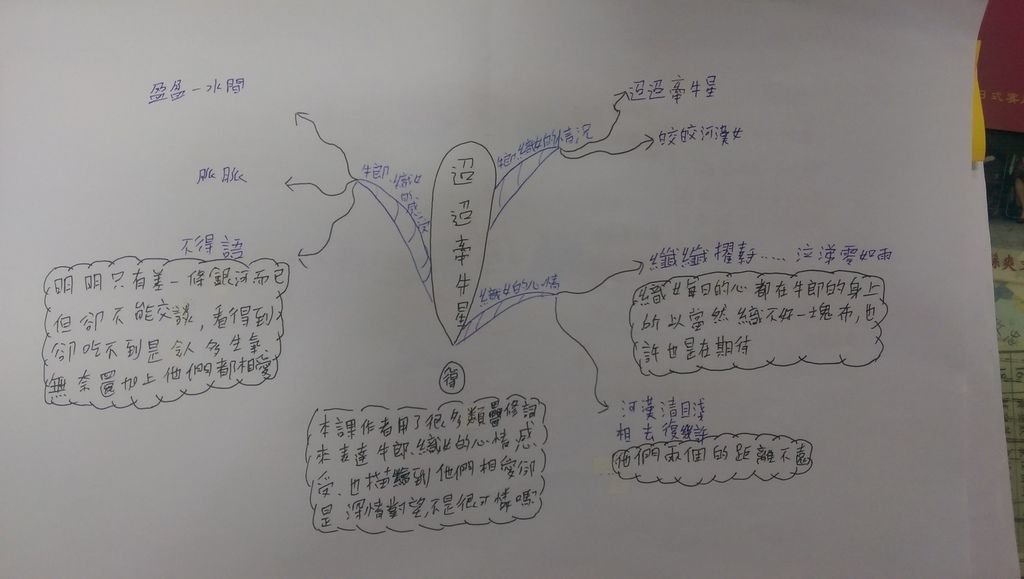 盈盈一水間
脈脈
不得語
明明只有差一條銀河而已
但卻不能交談,看得到
卻吃不到是令人多生氣
無奈置加上他們都相愛
牛郎
織女
迢迢牽牛星
牛郎織女的情況
迢迢牽牛星
皎皎河漢女
織女的心情
纖纖擢素手....泣涕零如雨
織女每日的心都在牛郎的身上
所以當然織不好一塊布,也
許也是在期待
河漢清且淺
相去復幾許
他們兩個的距離不遠
得
本課作者用了很多類疊修詞
來表達牛郎.織女的心情感
受、也描繪到他們相愛卻
是深情對望,不是很可憐嗎